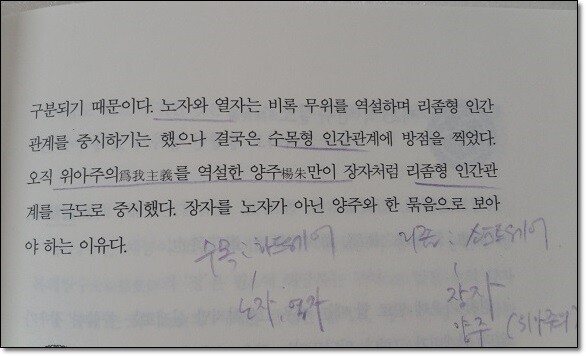 구분되기 때문이다. 노자와 열자는 비록 무위를 역설하며 리좀형 인간
관계를 중시하기는 했으나 결국은 수목형 인간관계에 방점을 찍었다.
오직 위아주의爲我主義를 역설한 양주楊朱만이 장자처럼 리좀형 인간관
계를 극도로 중시했다. 장자를 노자가 아닌 양주와 한 묶음으로 보아
야 하는 이유다.
수목 : 하드웨어
리좀 : 소프트웨어
노자, 열자
장자
양주 (위아주의)